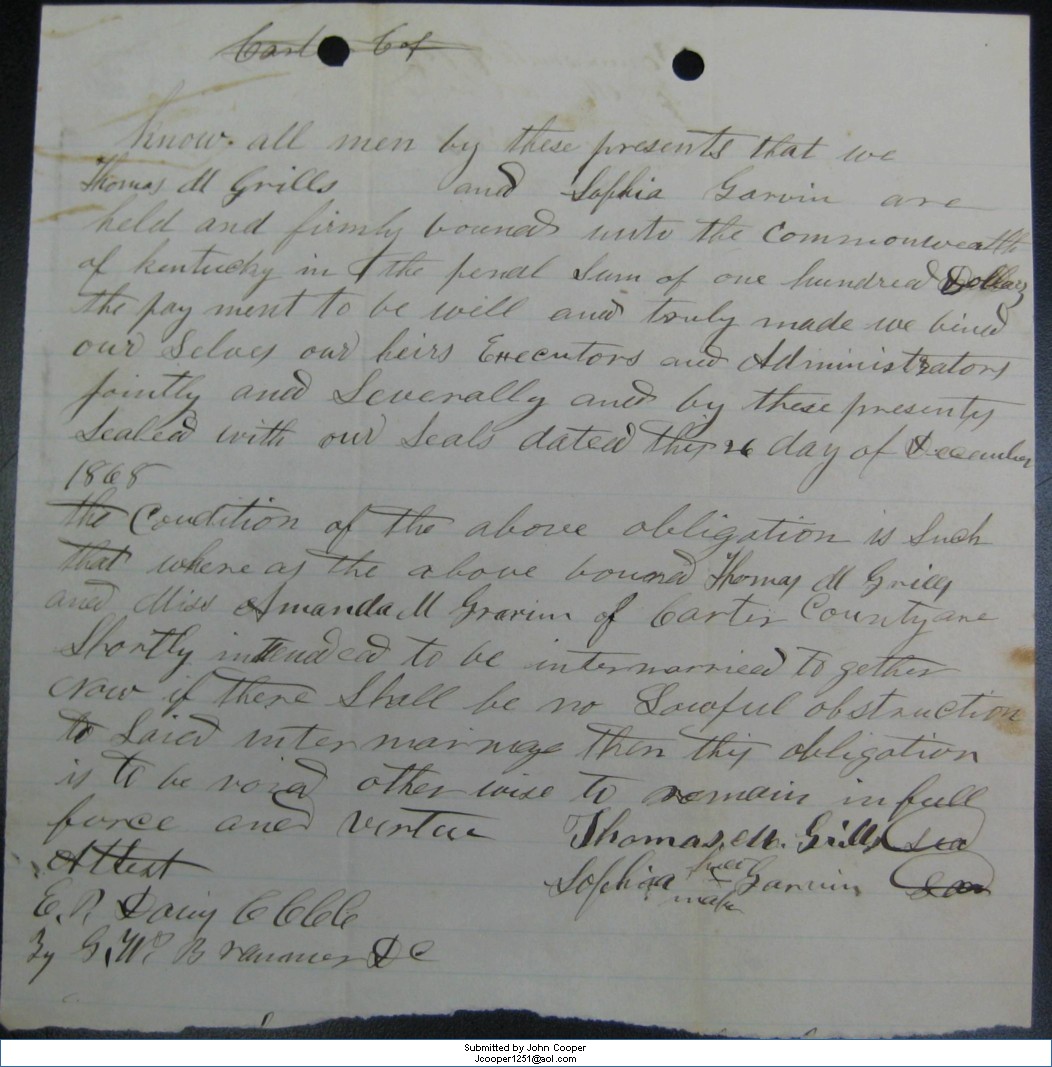 Cart Cot
Know all men by these presents that we
Thomas M Grills and Sophia Garvin are
held and firmly bound unto the Commonwealth
of Kentucky in the penal Sum of one hundred Dollars
the pay ment to be will and truly made we bind
our Selves our heirs Executors and Administrators
jointly and Severally and by these presents
Sealed with our Seals dated this 26 day of December
1868
the Condition of the above obligation is Such
that where as the above bound Thomas M Grills
and Miss Amanda M Gravin of Carter County are
Shortly inttended to be intermarried to gether
Now if there Shall be no Lawful obstruction
to Said inter marriage then this obligation
is to be void other wise to remain in full
force and vertue Thomas. M. Grills Sea
Attest Sophia her x mark Garvin Seal
E. P. Davis C C C C
By G. W. Brammer D C
Submitted by John Cooper
Jcooper1251@aol.com